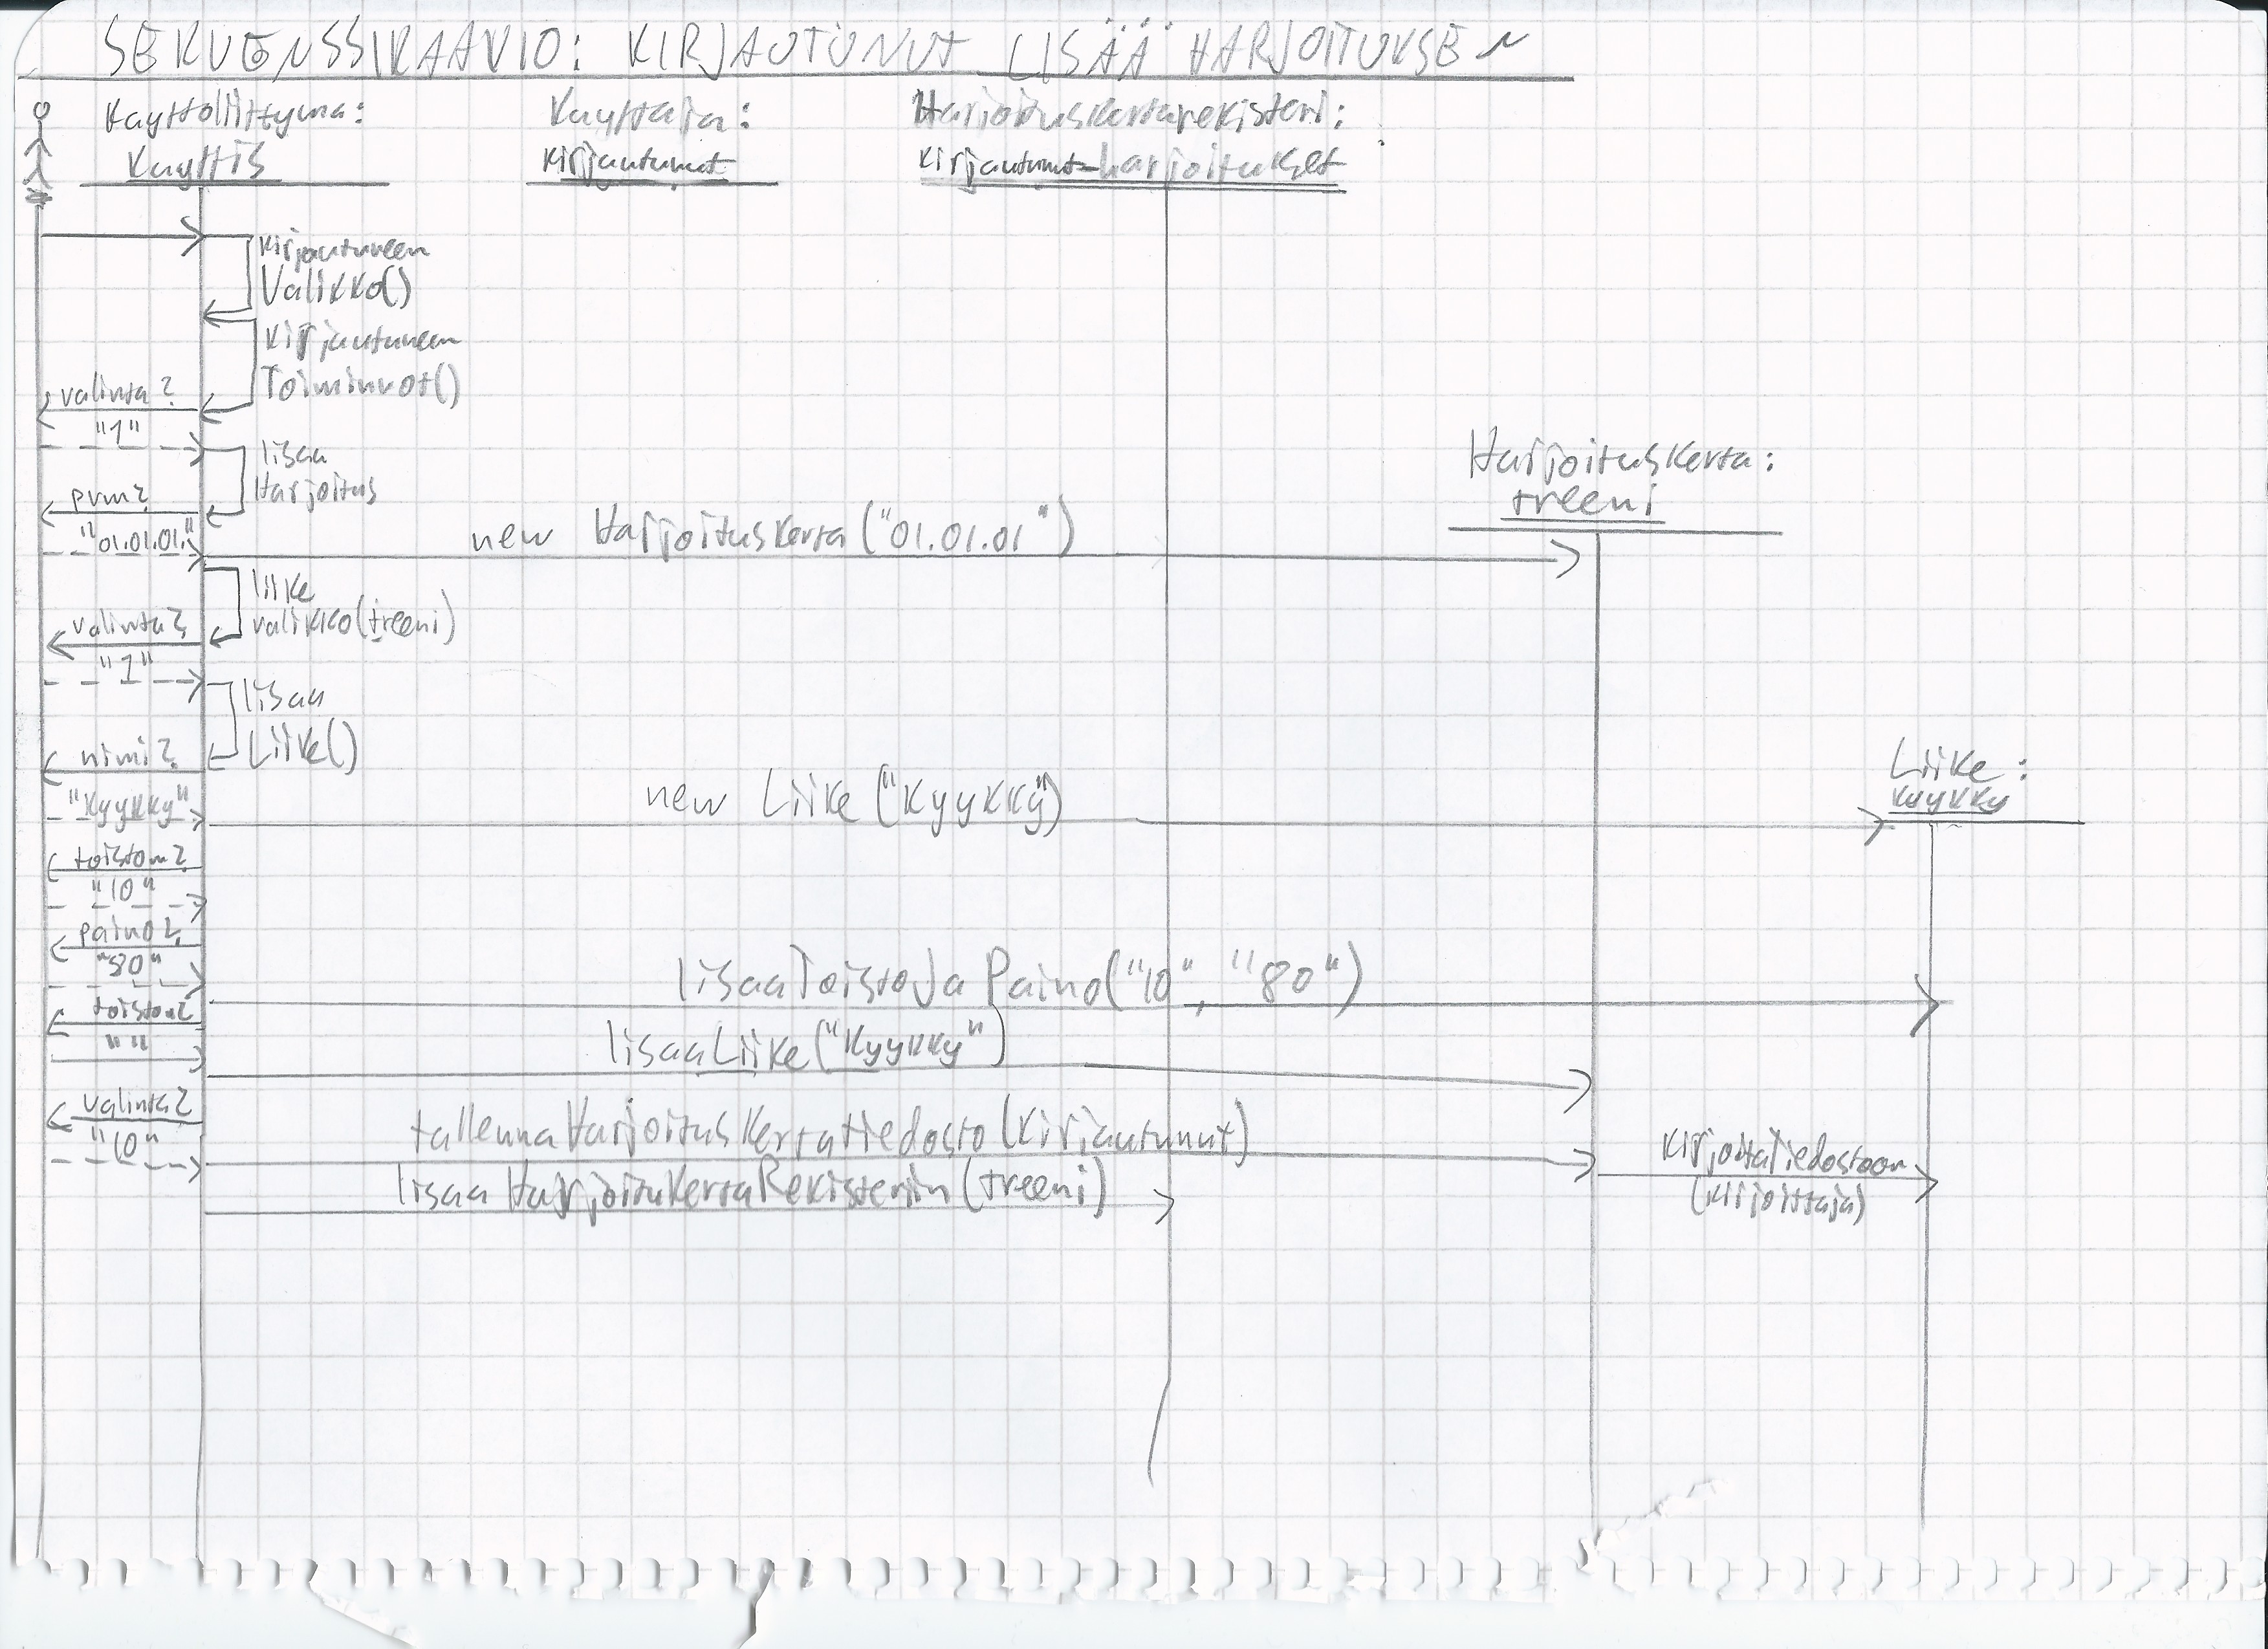 SEKVENSSIKAAVIO: KIRJAUTUNUT LISÄÄ HARJOITUKSEN
Kayttoliittyma:
kayttis
Kayttaja:
kirjautunut
Harjoituskertarekisteri:
kirjautunut-harjoitukset
kirjautuneen
Valikko()
kirjautuneen
Toiminnot()
valinta?
"1"
lisaa
Harjoitus
pvm?
"01.01.01."
Harjoituskerta:
treeni
new Harjoituskerta("01.01.01")
liike
valikko(treeni)
valinta?
"1"
lisaa
Liike()
nimi?
"kyykky"
new Liike("kyykky")
Liike:
kyykky
toistom?
"10"
paino?
"80"
lisaaToistoJaPaino("10", "80")
toistom?
""
lisaaLiike("kyykky")
valinta?
"10"
tallennaHarjoitusKertaTiedosto(kirjautunut)
kirjoitaTiedostoon
(kirjoittaja)
lisaaHarjoituKertaRekisteriin(treeni)